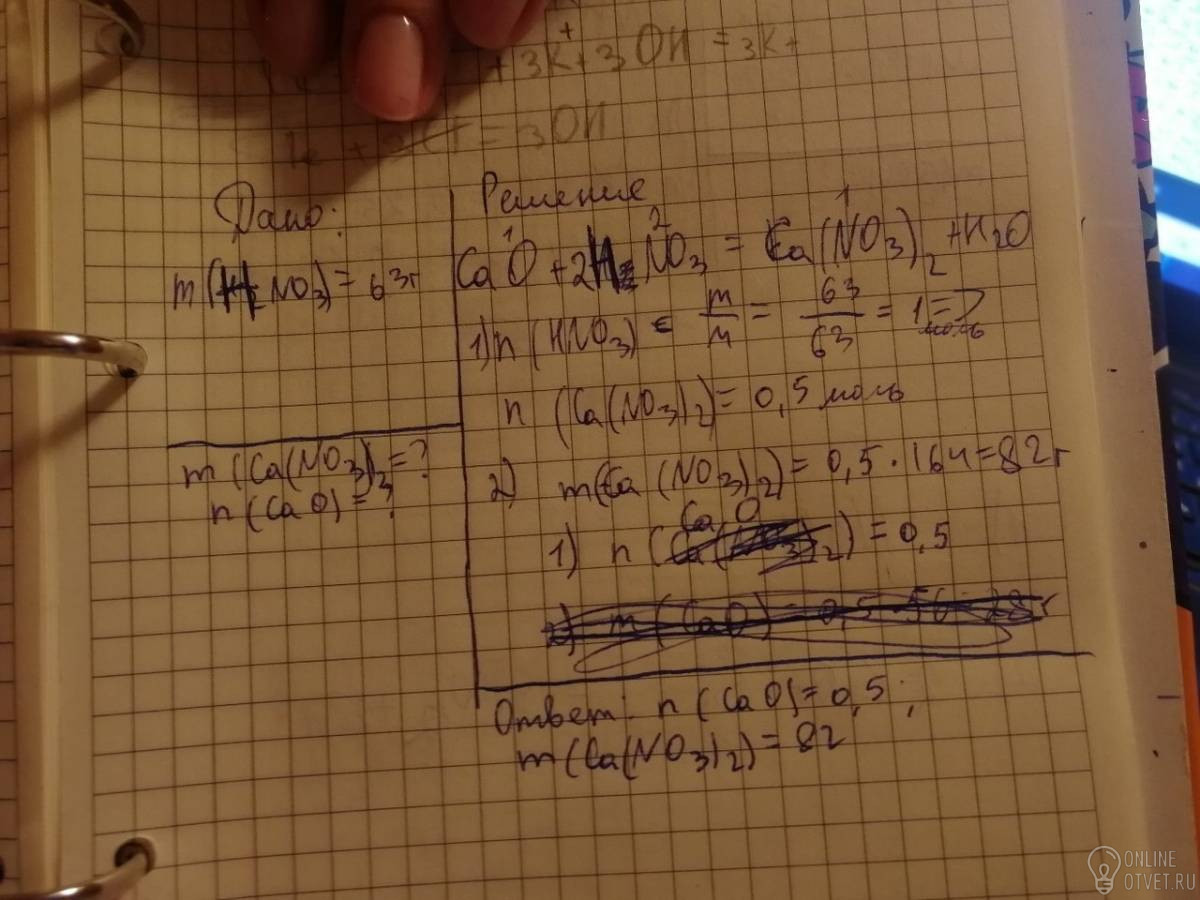 + 3K⁺ + 3OH = 3K+
= 3OH
Дано:
m(HNO₃) = 63г
m(Ca(NO₃)₂ = ?
n(CaO) = ?
Решение
1 2 1
CaO + 2HNO₃ = Ca(NO₃)₂ + H₂O
1) n(HNO₃) = m/M = 63/63 = 1 моль =>
n (Ca(NO₃)₂) = 0,5 моль
2) m(Ca(NO₃)₂) = 0,5 · 164 = 82г
1) n(CaO) = 0,5
2) m(CaO) = 0,5 · 56 = 28г
Ответ: n(CaO) = 0,5;
m(Ca(NO₃)₂) = 82
ONLINE
OTVET.RU